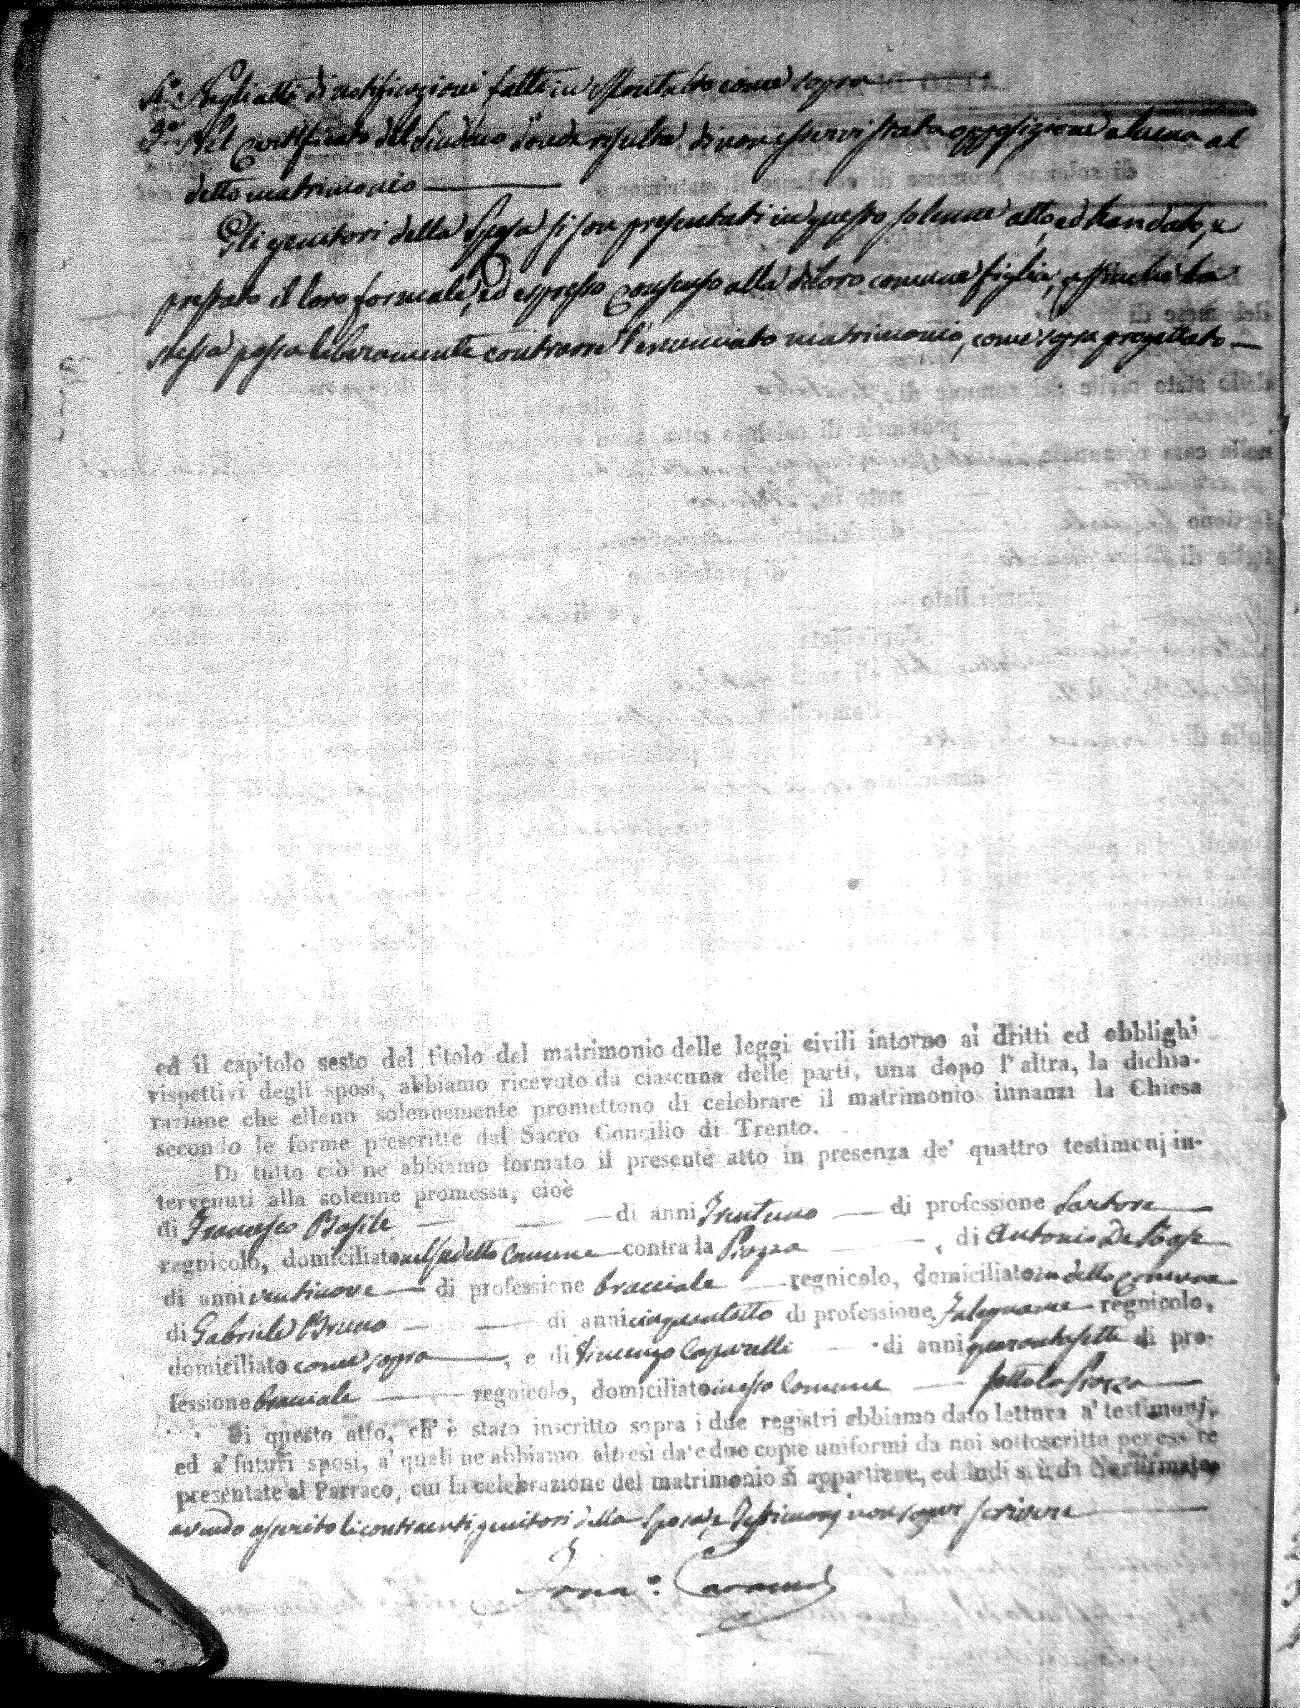 4.° Negli atti di notificazioni fatte in come sopra
5.° Nel Certificato del Sindaco donde risulta di non esservi stata opposizione alcuna al
detto matrimonio
Gli genitori della Sposa si son presentati in questo solenne atto, ed han dato, e
prestato il loro formale, ed espresso consenso alla di loro comune figlia, affinché la
stessa possa liberamente contrarre l'enunciato matrimonio, come sopra progettato
ed il capitolo sesto del titolo del matrimonio delle leggi civili intorno ai dritti ed obblighi
rispettivi degli sposi, abbiamo ricevuto da ciascuna delle parti, una dopo l'altra, la dichia-
razione che elleno solennemente promettono di celebrare il matrimonio innanzi la Chiesa
secondo le forme prescritte dal Sacro Concilio di Trento.
Di tutto ciò ne abbiamo formato il presente atto in presenza de' quattro testimonj in-
tervenuti alla solenne promessa, cioè
di Francesco Basile di anni Trentuno di professione Sartore
regnicolo, domiciliato nel sudetto Comune contra la Piazza , di Antonio De
di anni ventinove di professione bracciale regnicolo, domiciliato in detto comune
di Gabriele Bruno di anni cinquantotto di professione Falegname regnicolo,
domiciliato come sopra , e di Vincenzo Caparelli di anni quarantasette di pro-
fessione bracciale regnicolo, domiciliato in esso Comune sotto la Piazza
Di questo atto, ch' è stato inscritto sopra i due registri abbiamo dato lettura a' testimonj,
ed a' futuri sposi, a' quali ne abbiamo altresì date due copie uniformi da noi sottoscritte per essere
presentate al Parroco, cui la celebrazione del matrimonio si appartiene, ed indi si è da Noi firmato,
avendo asserito li contraenti, genitori della Sposa, e Testimonj non saper scrivere